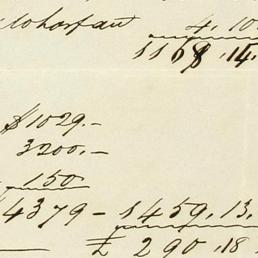 4. 10.
1168.14.
$1029.-
3200.-
150
$4379 - 1459.13.
£ 290.18-